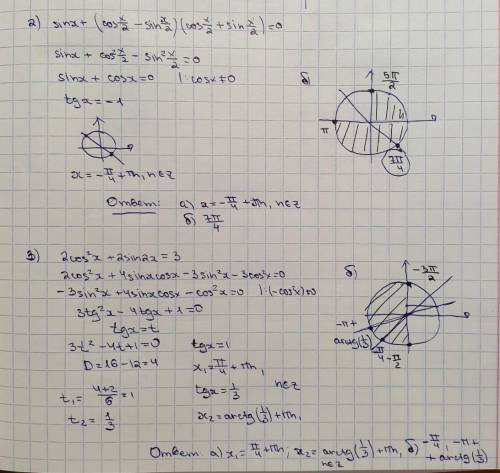 2) sinx + (cos x/2 - sin x/2)(cos x/2 + sin x/2) = 0
sinx + cos² x/2 - sin² x/2 = 0
sinx + cosx = 0 |: cosx ≠ 0
tgx = -1
x = -π/4 + πn, n∈z
Ответ: а) x = -π/4 + πn, n∈z
б) 7π/4
б)
5π/2
π
7π/4
3) 2cos²x + 2sin2x = 3
2cos²x + 4sinxcosx - 3sin²x - 3cos²x = 0
-3sin²x + 4sinxcosx - cos²x = 0 |: (-cos²x) ≠ 0
3tg²x - 4tgx + 1 = 0
tgx = t
3t² - 4t + 1 = 0
D = 16 - 12 = 4
t₁ = 4+2/6 = 1
t₂ = 1/3
tgx = 1
x₁ = π/4 + πn,
tgx = 1/3
n∈z
x₂ = arctg(1/3) + πn,
б)
-3π/2
-π +
arctg(1/3)
-π/2
Ответ а) x₁ = π/4 + πn; x₂ = arctg(1/3) + πn, б) -π/4, -π +
n∈z
+ arctg(1/3)